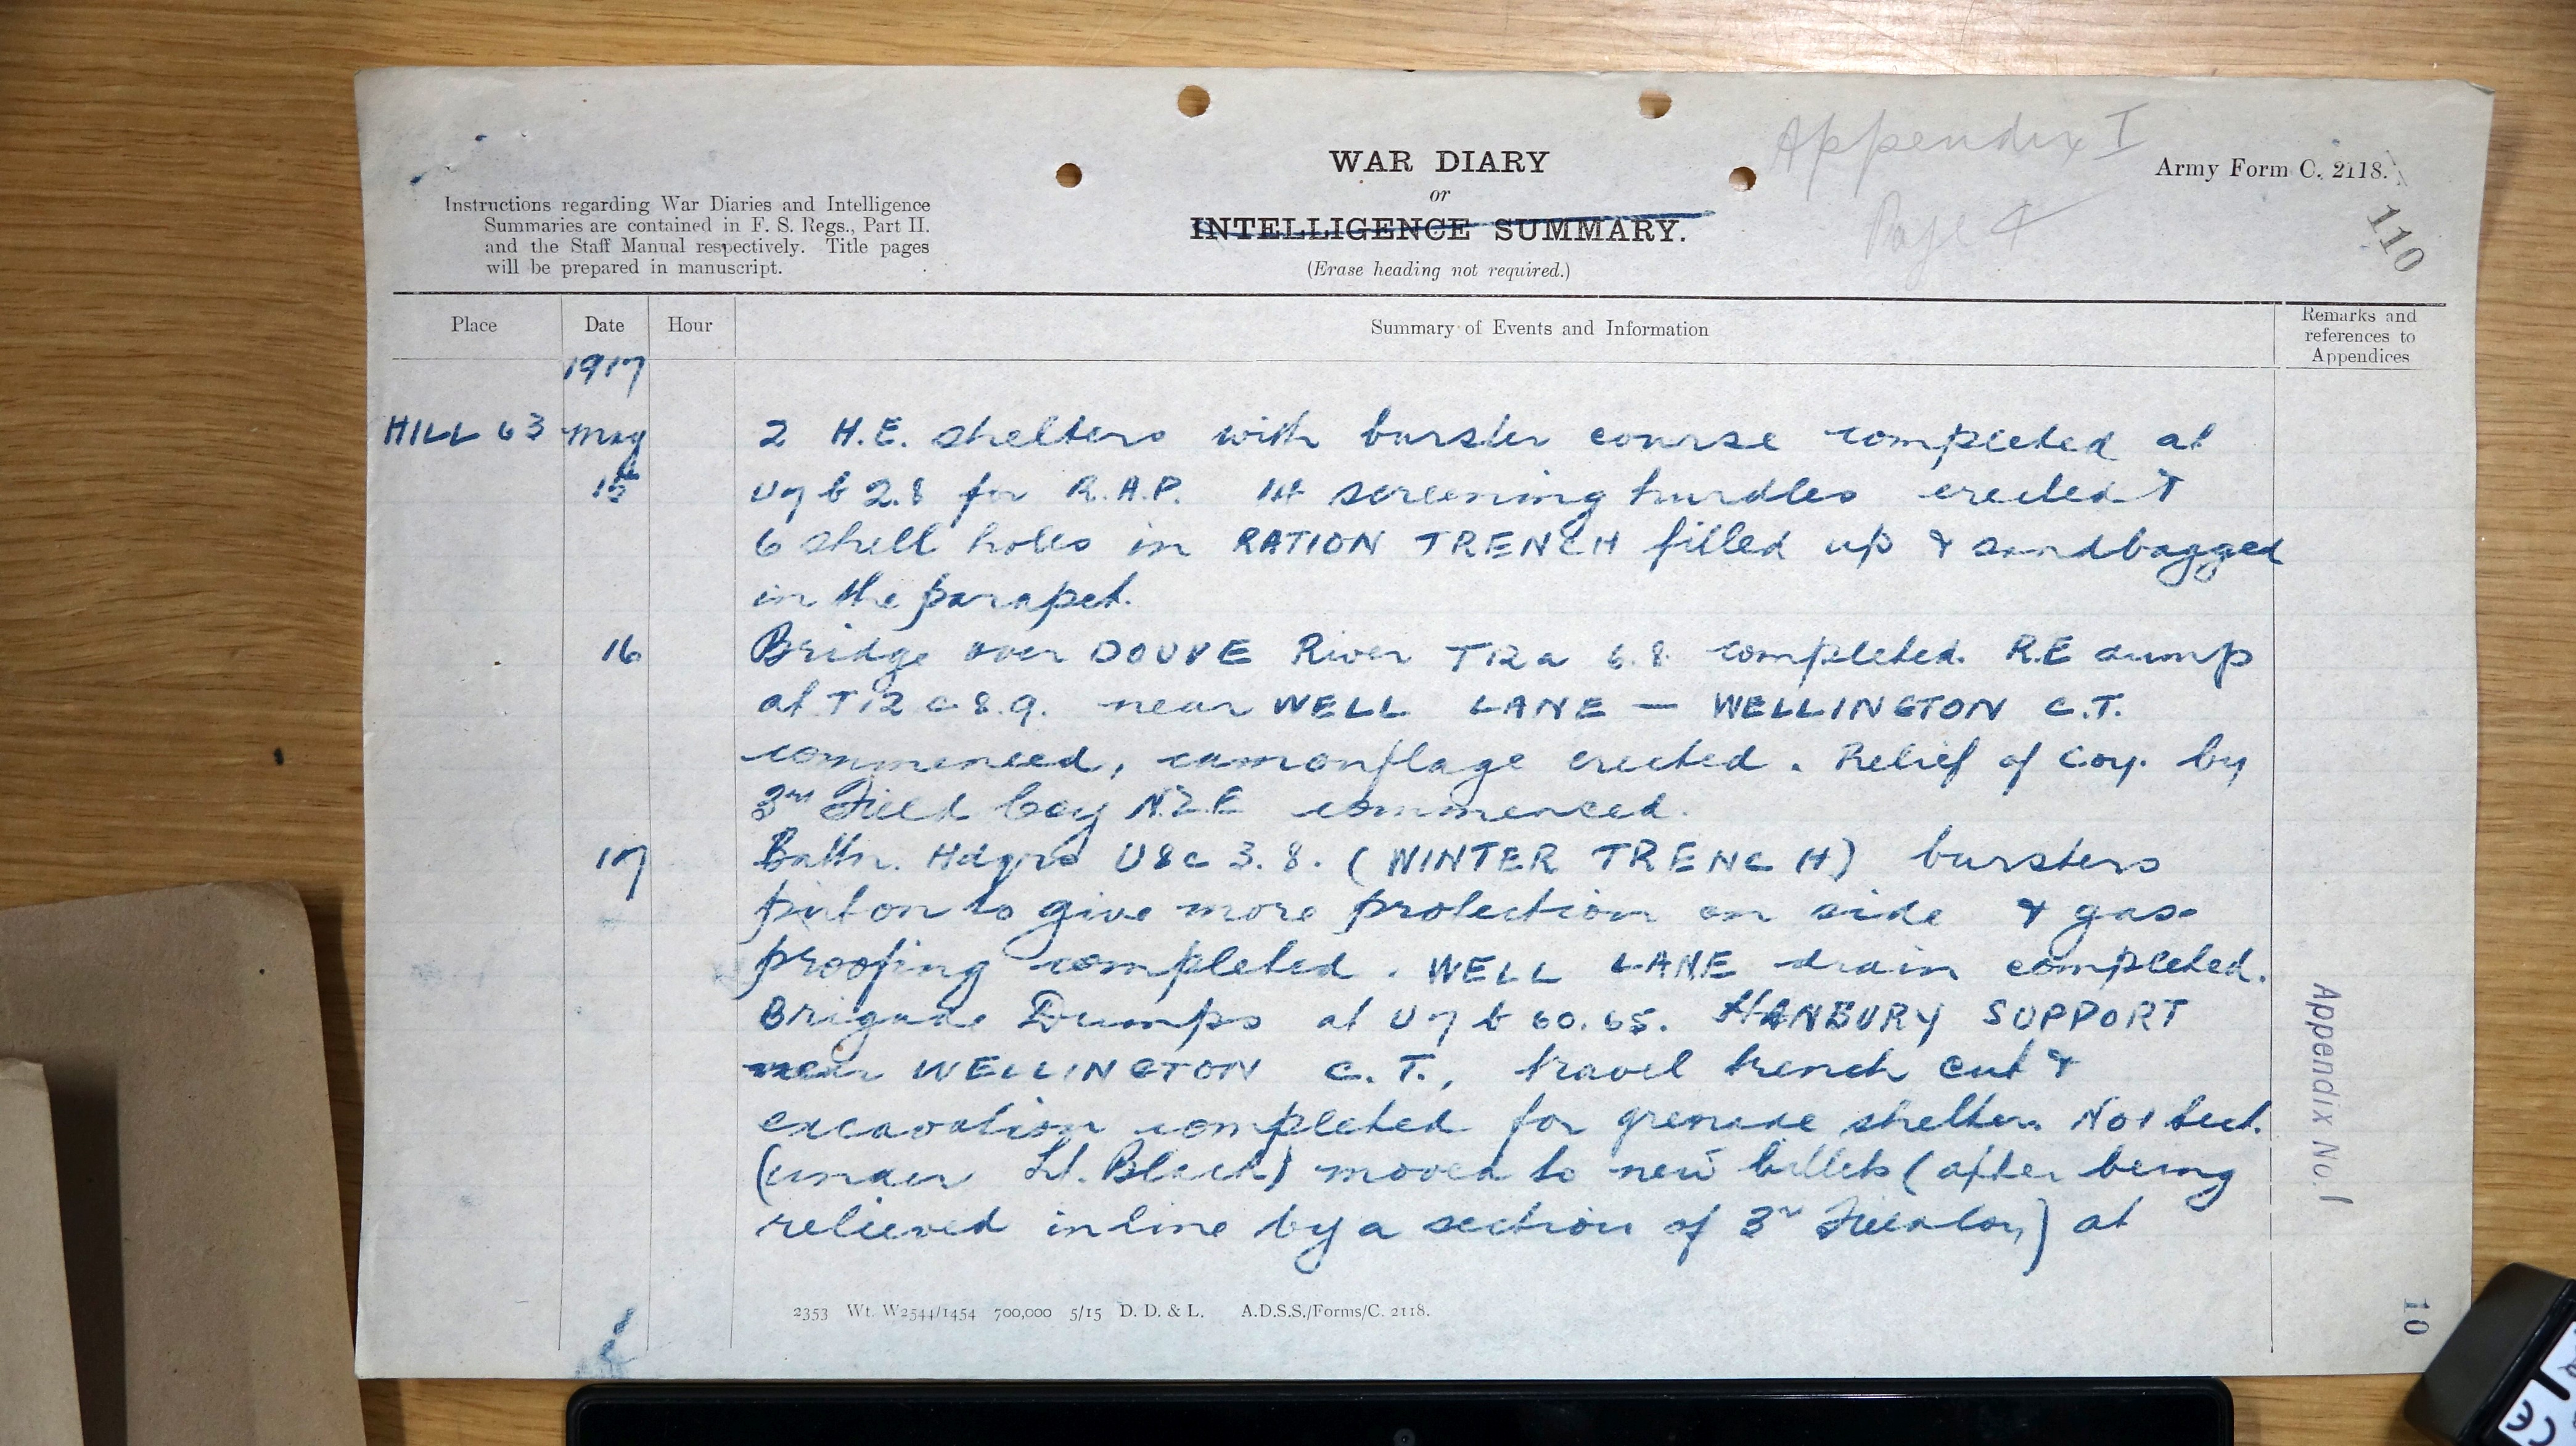 Appendix I
Page 4
WAR DIARY
or
INTELLIGENCE SUMMARY.
(Erase heading not required.)
Army Form C. 2118.
110
Instructions regarding War Diaries and Intelligence
Summaries are contained in F. S. Regs., Part II.
and the Staff Manual respectively. Title pages
will be prepared in manuscript.
Place Date Hour Summary of Events and Information Remarks and references to Appendices
1917
HILL 63 May 2 H.E. shelters with burster course completed at
15th U7b 2.8 for R.A.P. 14 screening hurdles erected &
6 shell holes in RATION TRENCH filled up & sandbagged
in the parapet.
16 Bridge over DOUVE River T12a 6.8. completed. R.E dump
at T12c 8.9. near WELL LANE — WELLINGTON C.T.
commenced, camouflage erected. Relief of Coy. by
3rd Field Coy N.Z.E commenced.
17 Battn. Hdqrs U8c 3.8. (WINTER TRENCH) bursters
put on to give more protection on side & gas
proofing completed. WELL LANE drain completed.
Brigade Dumps at U7b 60.65. HANBURY SUPPORT
near WELLINGTON C.T., travel trench cut &
excavation completed for grenade shelter. No 1 Sect.
(under Lt. Black) moved to new billets (after being
relieved in line by a section of 3rd Field Coy) at
Appendix No. 1
2353 Wt. W2544/1454 700,000 5/15 D. D. & L. A.D.S.S./Forms/C. 2118.
10